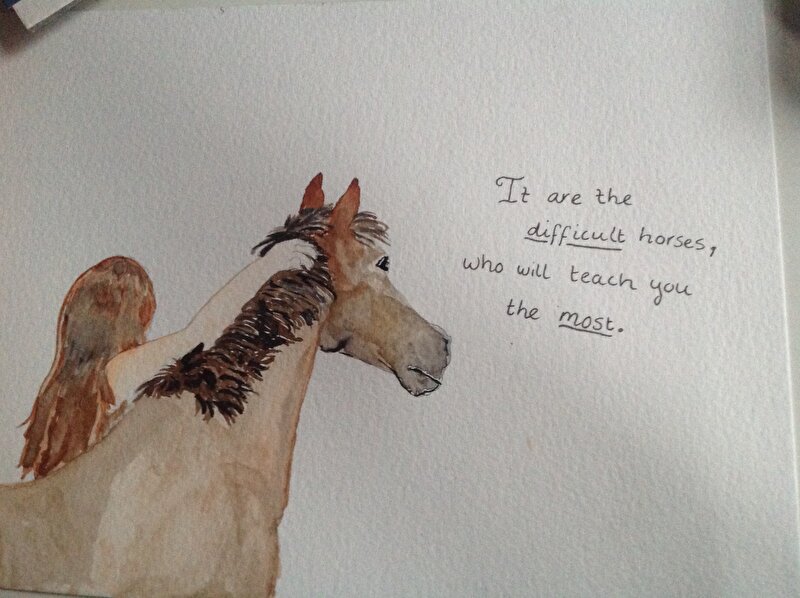 It are the
difficult horses,
who will teach you
the most.